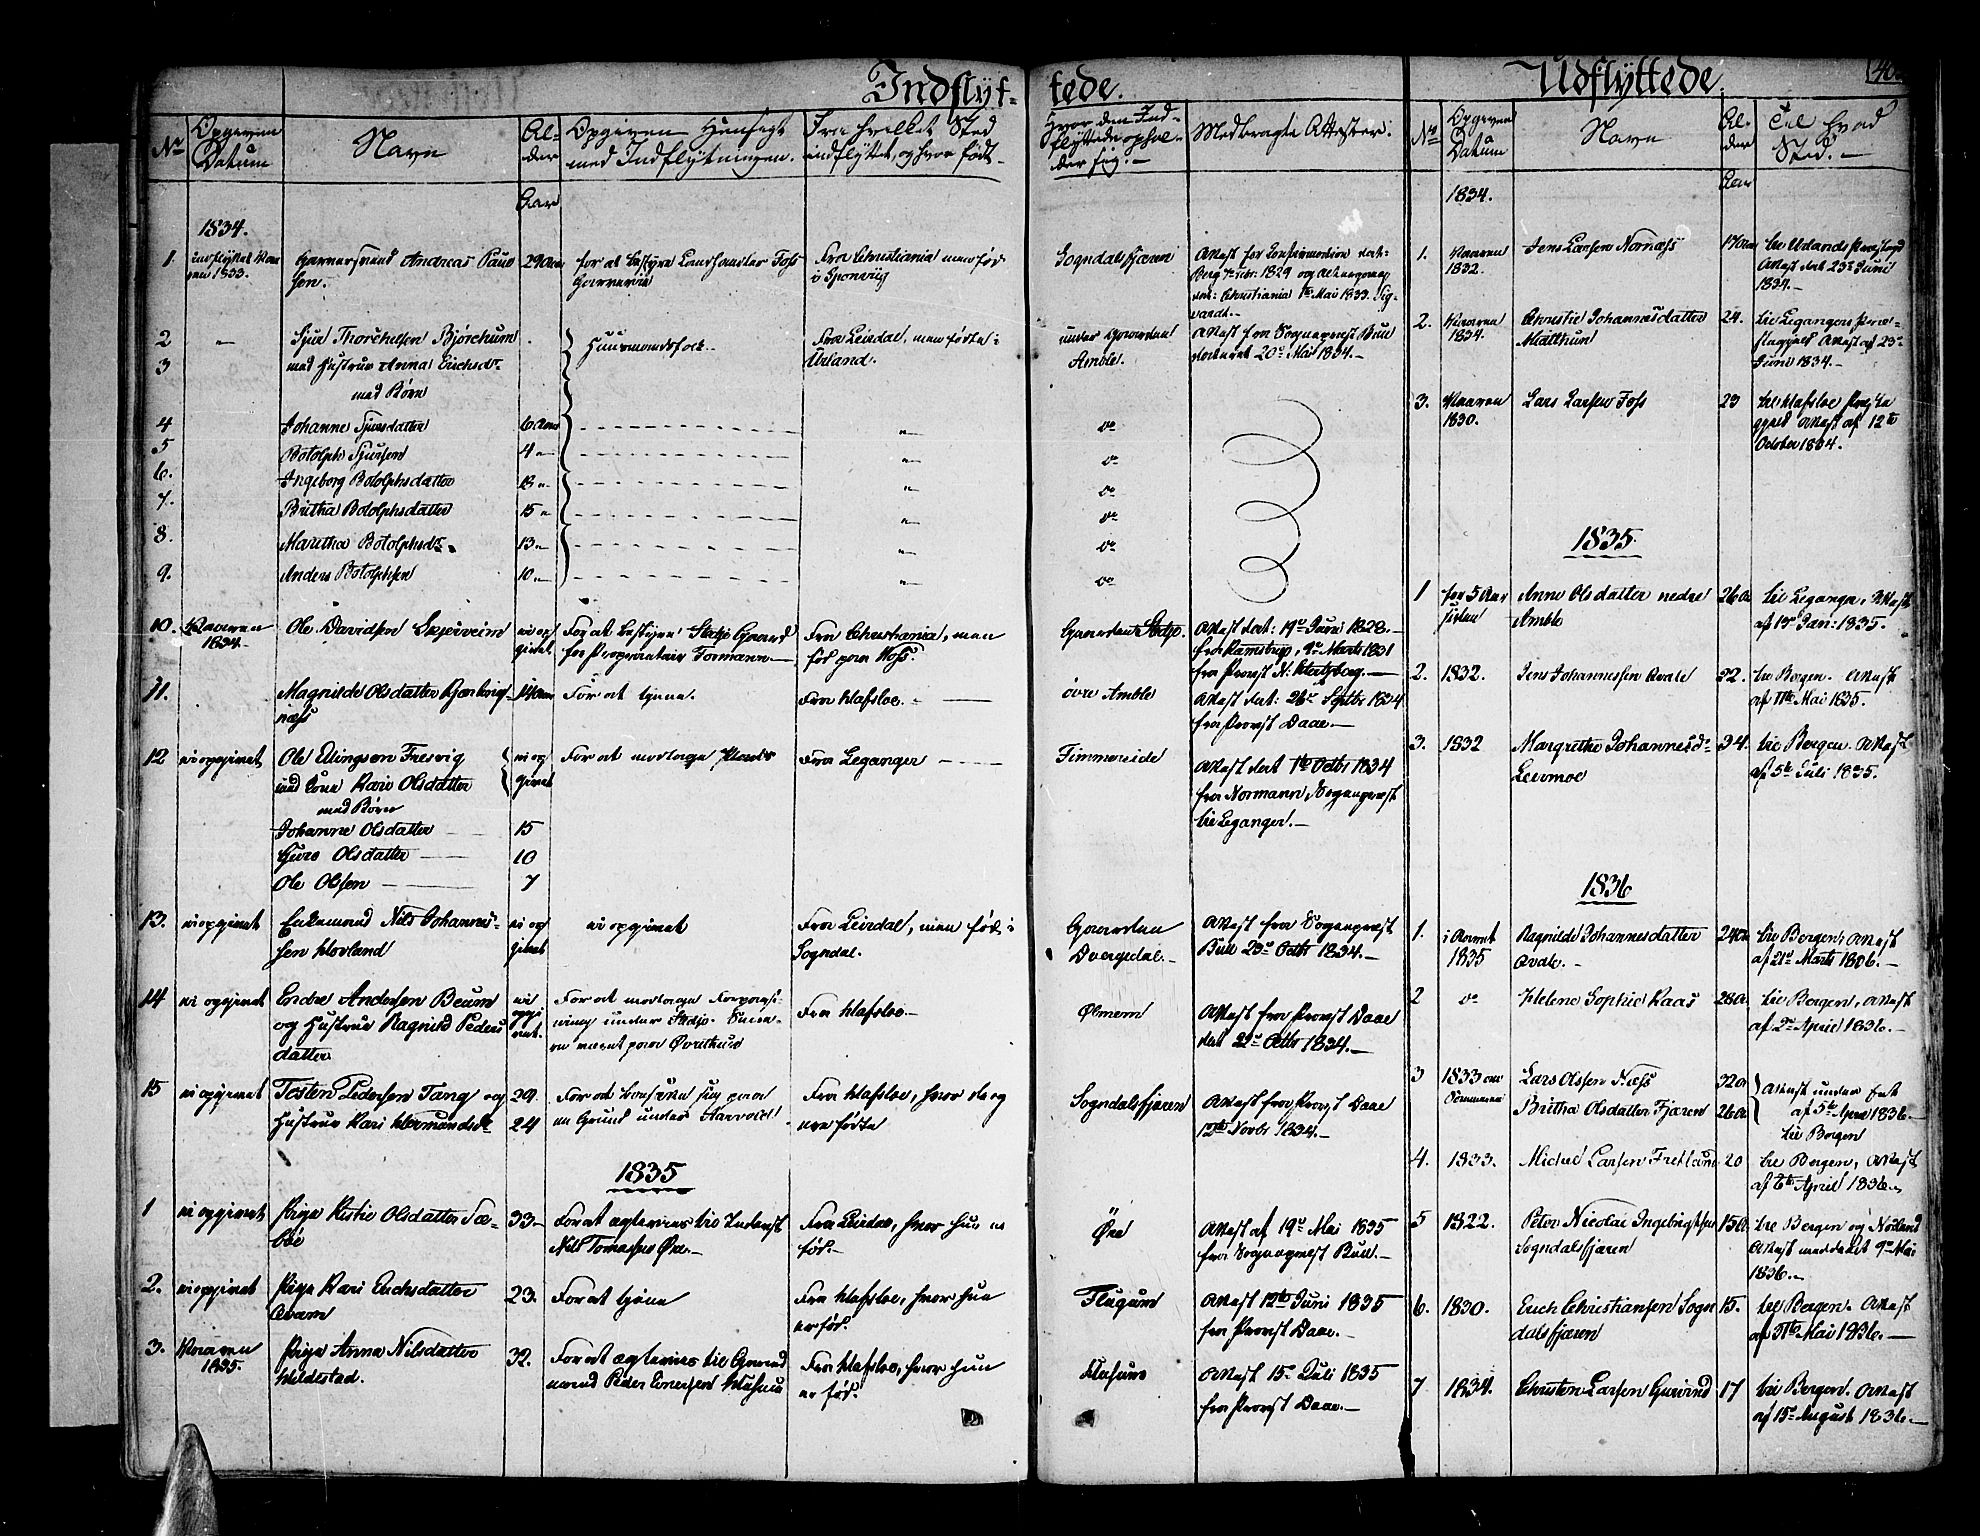 Indflyt-
tede.
Udflyttede.
No
Opgiven Datum
Navn
Al-
der
Opgiven Hensigt
med Indflytningen.
Fra hvilket Sted
indflyttet, og hvor født.
Hvor den Ind-
flyttede ophol-
der sig.
Medbragte Attester.
Aar
1834.
1
indflyttet Vaa-
ren 1833.
Garversvend Andreas Paul
sen.
29 Aar
for at bestyre Landhandler Foss
Garverie
Fra Christiania men fød
i
Sogndalsfjæren
Attest for Confirmation dat:
Berg 1829 og
dat: Christiania 1te Mai 1833. Sig-
vardt.
2
Sjur Thorchelsen Bjørchum
Huusmandsfolk.
Fra Leirdal, men fødte i
under Gaarden
Attest fra Sognepræst Bull
3
med Hustrue Anna Erichsdr
Urland.
Amble.
dateret 20de Mai 1834.
med Børn
4
Johanne Sjursdatter
6 Aar
do
5
Botolph Sjursen
4 "
do
6.
Ingeborg Botolphsdatter
18 "
do
7.
Britha Botolphsdatter
15 "
do
8.
Maritha Botolphsdr
13 "
do
9.
Anders Botolphsen
10 "
do
10.
Vaaren
1834.
Ole Davidsen Skjerveim
ei op
givet
For at bestyre Stedje Gaard
for Proprietair Formann
Fra Christiania, men
fød paa Voss.
Gaarden Stedje.
Attest dat: 19de Juni 1828.
fra Ramstrup, 9de Marts 1831
fra Provst N. Hertzberg.
11.
Magnilde Olsdatter
næss
14 Aar
For at tjene.
Fra Hafsloe.
øvre Amble
Attest dat: 26de Septbr 1834
fra Provst Daae.
12
ei opgivet
Ole Ellingsen Fresvig
med Kone Kari Olsdatter
med Børn
ei op
givet
For at modtage Plads
Fra Leganger
Timmereide
Attest dat 1te Octbr 1834
fra Normann, Sognepræst
til Leganger.
Johanne Olsdatter
15
Guro Olsdatter
10
Ole Olsen
7
13.
ei opgivet
Enkemand Nils Johannes-
sen Hovland
ei op
givet
ei opgivet
Fra Leirdal, men fød i
Sogndal.
Gaarden
Dvergedal.
Attest fra Sognepræst
Bull 23de Octbr 1834.
14
ei opgivet
Endre Andersen Beum
og Hustrue Ragnild Peders
datter
ei
opgi
vet.
For at modtage Forpagt-
ning under Stedje
Fra Hafsloe
Ølmem
Attest fra Provst Daae
dat 22de Octbr 1834.
15
ei opgivet
Tosten Pedersen Tang og
Hustrue Kari Hermundsdr
29.
24
For at bosætte sig paa
en Grund under Navold.
Fra Hafsloe, hvor de og
ere fødte
Sogndalsfjæren
Attest fra Provst Daae
12te Novbr 1834.
1835
1
ei opgivet
Pige Kistie Olsdatter Sæ-
bøe
33
For at ægtevies til Inderst
Nils Tomassen Øre.
Fra Leirdal, hvor hun er
fød.
Øre
Attest af 19de Mai 1835
fra Sognepræst Bull.
2.
ei opgivet
Pige Kari Erichsdatter
Qvam
23.
For at tjene
Fra Hafsloe, hvor hun
er fød.
Flugum
Attest 12te Juni 1835
fra Provst Daae.
3.
Vaaren
1835.
Pige Anna Nilsdatter
Hildestad.
32.
For at ægtevies til Gaard
mand Peder
Fra Hafsloe, hvor hun
er fød.
Attest 15de Juli 1835
fra Provst Daae.
No
Opgiven
Datum
Navn
Al-
der
Til hvad
Sted.
Aar
1834.
1.
Vaaren
1832.
Jens Larsen Nornæss
17 Aar
til Urlands Præstegjeld
Attest dat 23de Juni
1834.
2.
Vaaren
1834.
Christie Johannesdatter
24.
til Legangers Præ-
stegjeld Attest af 23de
Juni 1834.
3.
Vaaren
1830.
Lars Larsen Foss
23
til Hafsloe Præste
gjeld Attest af 12te
October 1834.
1835.
1
for 5 Aar
siden
Anne Olsdatter nedre
Amble
26 A
til Leganger, Attest
af 15de Jan: 1835.
2.
1832.
Jens Johannessen Qvale
22.
til Bergen. Attest
af 11te Mai 1835.
3.
1832
Margrethe Johannesdr
34.
til Bergen. Attest
af 5te Juli 1835.
1836
1.
i Høst
1835
Ragnilde Johannesdatter
Qvale.
24 A
til Bergen, Attest
af 21de Marts 1836.
2
do
Helene Sophie Kaas
28 A
til Bergen, Attest
af 2den April 1836.
3
1833 om
Sommeren
Lars Olsen Næss
Britha Olsdatter Fjæren
32 A
26 A
Attest under Eet
af 5te April 1836.
til Bergen
4.
1833.
Michel Larsen Fretland
20
til Bergen, Attest
af 6te April 1836.
5
1822.
Peter Nicolai Ingebrigtsen
Sogndalsfjæren
15 A
til Bergen og Norland
Attest meddelt 9de Mai
1836.
6.
1830.
Erich Christiansen Sogn
dalsfjæren
15.
til Bergen. Attest
af 31te Mai 1836.
7
1834.
Christen Larsen Gurvind
17
til Bergen. Attest
af 15de August 1836.